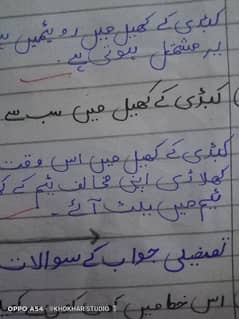 کبڈی کے کھیل میں دو ٹیمیں
پر مشتمل ہوتی ہے۔
کبڈی کے کھیل میں سب سے
کبڈی کے کھیل میں اس وقت
کھلاڑی اپنی مخالف ٹیم کے
ٹیم میں پلٹ آئے۔
تفصیلی جواب کے سوالات
اس خط میں
OPPO A54 KHOKHAR STUDIO